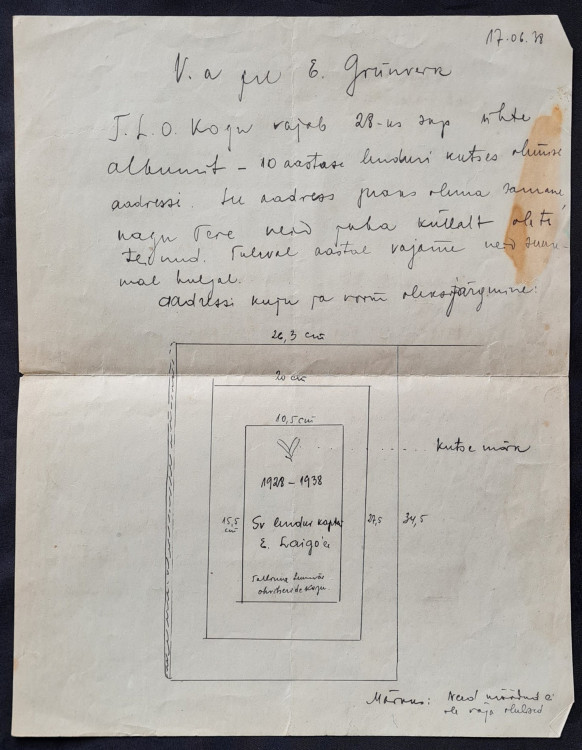 17.06.38
V. a prl E. Grünverk
T.L.O. Kogu vajab 28-ks sep ühte
albumit – 10 aastase lenduri kutses olemise
aadressi. See aadress peaks olema samane,
nagu Teie neid juba küllalt olete
teinud. Tuleval aastal vajame neid suure-
mal hulgal.
Aadressi kuju ja vorm oleks järgmine:
26,3 cm
20 cm
10,5 cm
Kutse märk
1928 – 1938
15,5 cm
Sv lendur kapten
27,5
34,5
E. Laigo'le
Tallinna Lennuväe
ohvitseride Kogu
Märkus: Need mõõdud ei
ole väga olulised